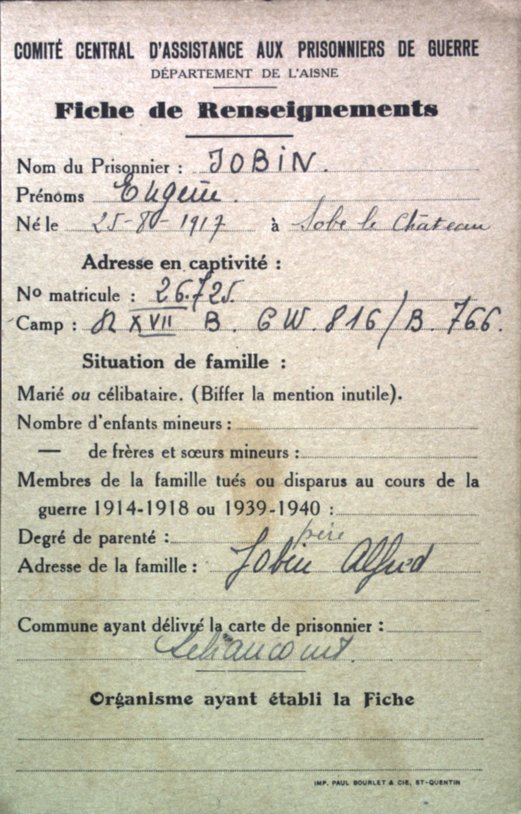 COMITÉ CENTRAL D'ASSISTANCE AUX PRISONNIERS DE GUERRE
DÉPARTEMENT DE L'AISNE
Fiche de Renseignements
Nom du Prisonnier : JOBIN.
Prénoms Eugène.
Né le 25-8-1917 à le Château
Adresse en captivité :
No matricule : 26.725.
Camp : XVII B. GW. 816/B. 766.
Situation de famille :
Marié ou célibataire. (Biffer la mention inutile).
Nombre d'enfants mineurs :
— de frères et sœurs mineurs :
Membres de la famille tués ou disparus au cours de la
guerre 1914-1918 ou 1939-1940 :
Degré de parenté : père
Adresse de la famille : Jobin Alfred
Commune ayant délivré la carte de prisonnier :
Organisme ayant établi la Fiche
IMP. PAUL BOURLET & CIE, ST-QUENTIN